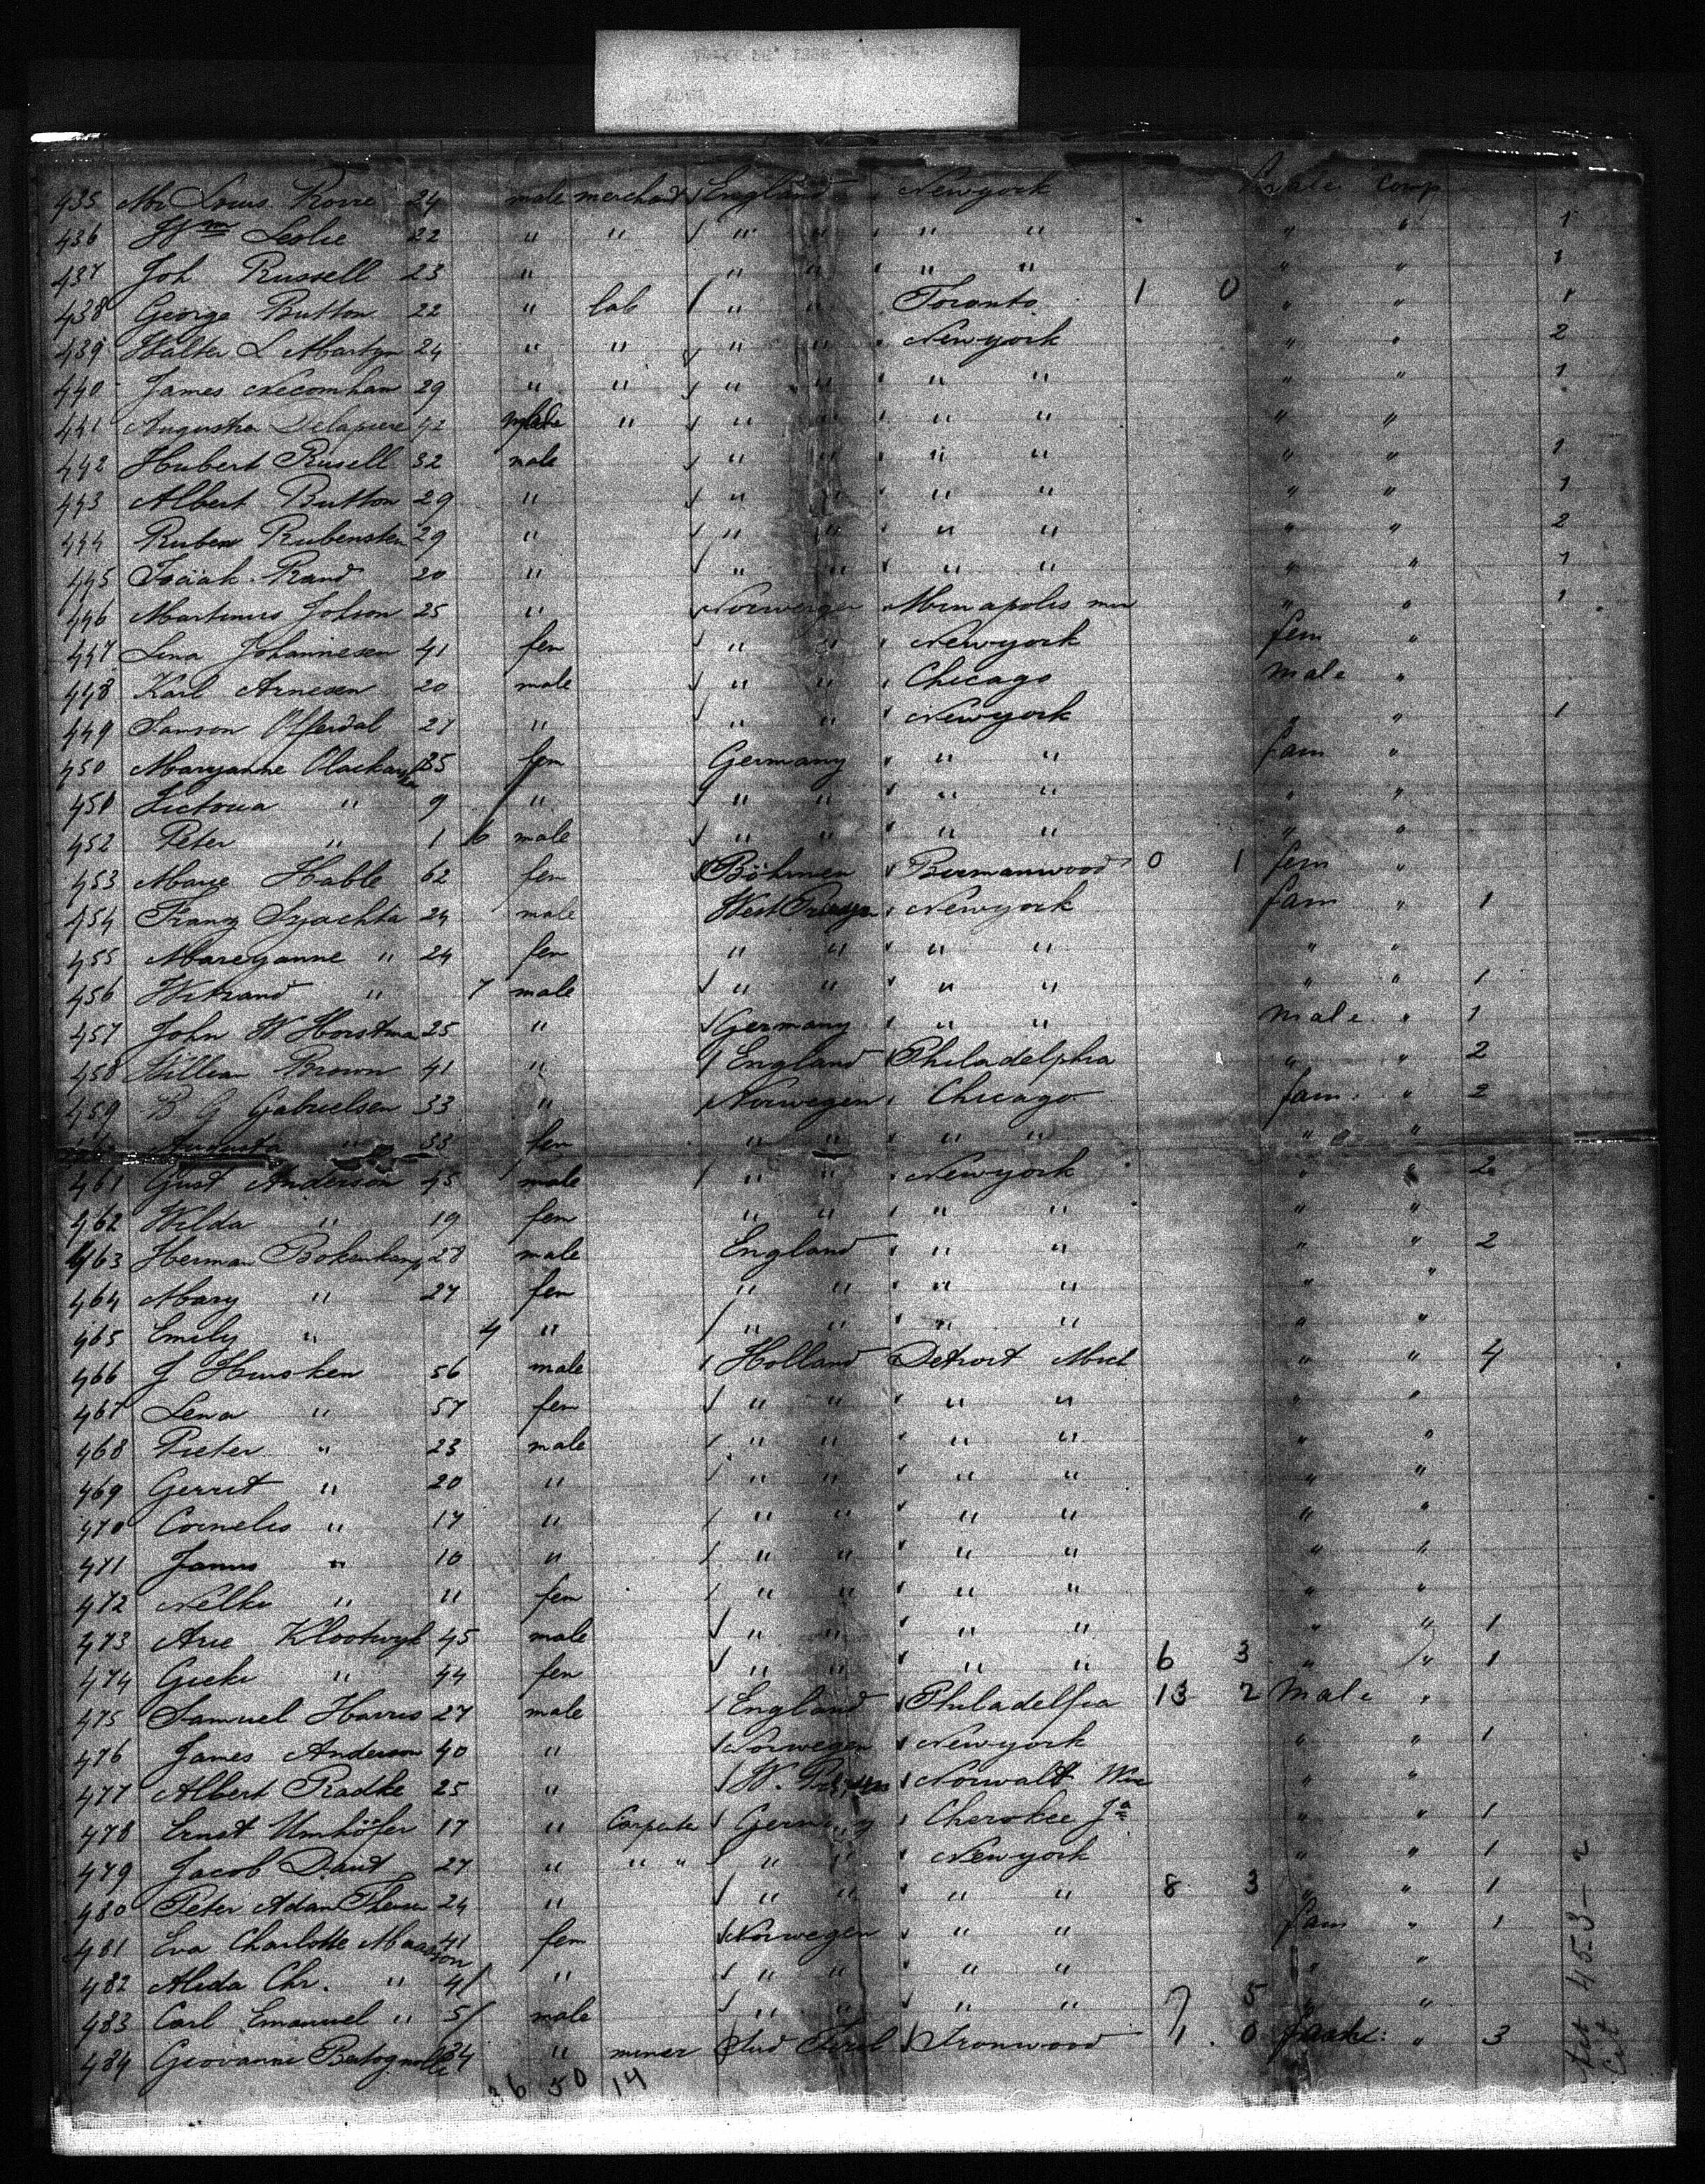 435 Mr Louis Rorre 24 male merchant England Newyork male comp
436 Wm Leslie 22 " " " " " " " " 1
437 Joh Russell 23 " " " " " " " 1
438 George Button 22 " lab " " Toranto 1 0 " " 1
439 Walter L Martyn 24 " " " " Newyork " " 2
440 James Necomhan 29 " " " " " " " " 1
441 Augustra Delapiere 42 " " " " " " "
442 Hubert Rusell 32 male " " " " " " 1
443 Albert Button 29 " " " " " " " 1
444 Ruben Rubensten 29 " " " " " " " 2
445 Isaak Rand 20 " " " " " " " 1
446 Martinus Johson 25 " Norwegen Minapolis min " " 1
447 Lina Johannesen 41 fem " " Newyork fem "
448 Karl Arnesen 20 male " " Chicago male "
449 Samson Offerdal 27 " " " Newyork " " 1
450 Maryanne 35 fem Germany " " fam "
451 Victoria " 9 " " " " " " "
452 Peter " 1 6 male " " " " " "
453 Marie Hable 62 fem Böhmen Burmanwood 0 1 fem "
454 Franz 24 male West Newyork fam " 1
455 Mareyanne " 24 fem " " " " " "
456 Witrand " 7 male " " " " " " 1
457 John W Horstma 25 " Germany " " male " 1
458 William Brown 41 " England Philadelphia " " 2
459 B G Gabrielsen 33 " Norwegen Chicago fam " 2
Augusta " 33 fem " " " " " "
461 Gust Anderson 45 male " " Newyork " " 2
462 Wilda " 19 fem " " " " " "
463 Herman Bokenkamp 28 male England " " " " 2
464 Mary " 27 fem " " " " " "
465 Emily " 4 " " " " " " "
466 J Hursken 56 male Holland Detroit Mich " " 4
467 Lena " 57 fem " " " " " "
468 Pieter " 23 male " " " " " "
469 Gerrit " 20 " " " " " " "
470 Cornelis " 17 " " " " " " "
471 Janus " 10 " " " " " " "
472 Nelke " 11 fem " " " " " "
473 Arie Klootwyk 45 male " " " " " " 1
474 Geeke " 44 fem " " " " 6 3 " " 1
475 Samuel Harris 27 male England Philadelfia 13 2 Male "
476 James Anderson 40 " Norwegen Newyork " " 1
477 Albert Radke 25 " W. Norwalk Wis " "
478 Ernst Umhöfer 17 " Carpente Germany Cherokee Ja " " 1
479 Jacob Daut 27 " " " " " Newyork " " 1
480 Peter Adam 24 " " " " " 8 3 " " 1
481 Eva Charlotte Masson 41 fem Norwegen " " fam " 1
482 Alida Chr. " 4/ " " " " " " "
483 Carl Emanuel " 5/ male " " " " 7 5 " "
484 Giovanni Bertognolli 34 " miner Sud Tirol Ironwood 1 0 " 3
36 50 14
453 - 2